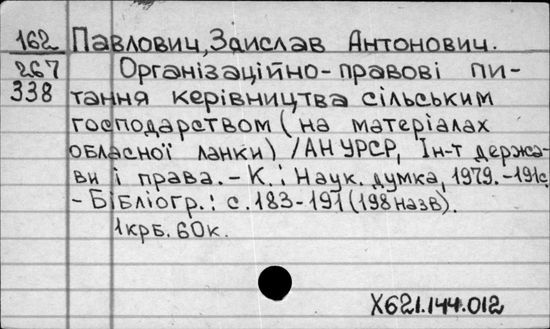 162 Павлович, Здислав Антонович.
267 Організаційно-правові пи-
338 тання керівництва сільським
господарством (на матеріалах
обласної ланки) /АН УРСР, Ін-т держа-
ви і права. - К.: Наук. думка, 1979. - 191с.
- Бібліогр.: с. 183-191 (198 назв).
1крб. 60к.
Х621.144.012